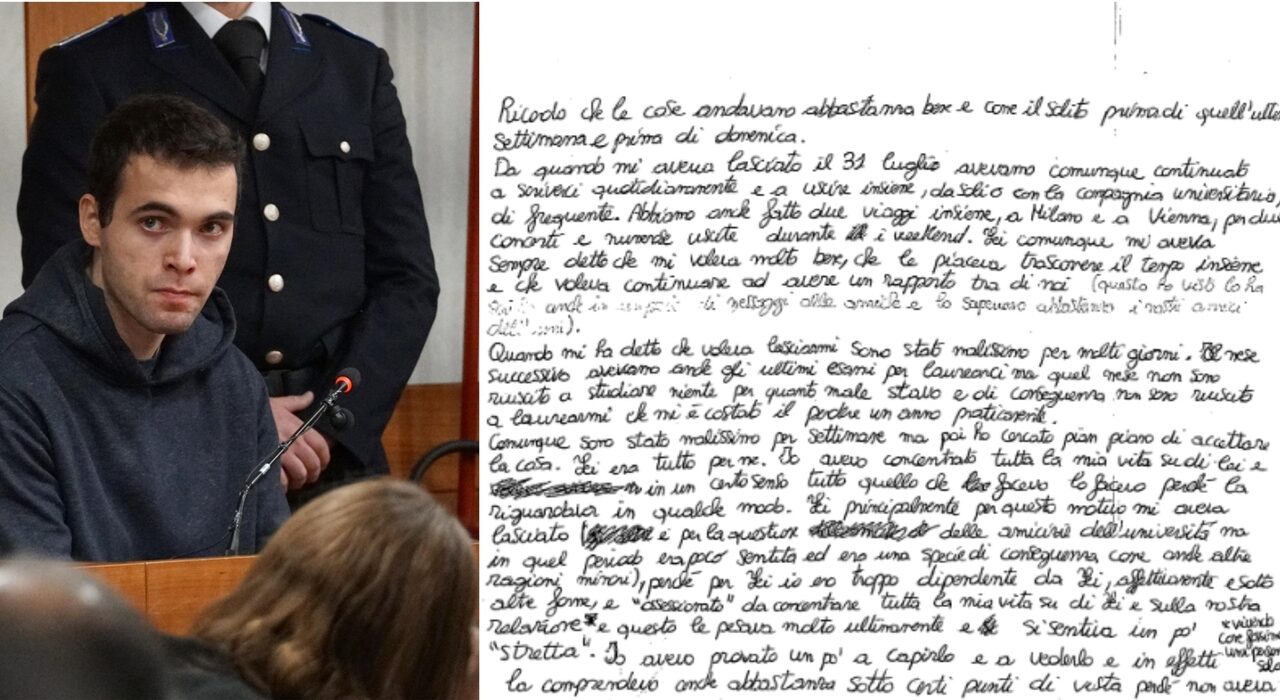 Ricordo che le cose andavano abbastanza bene e come il solito prima di quell'ultim
settimana e prima di domenica.
Da quando mi aveva lasciato il 31 luglio avevamo comunque continuato
a scriverci quotidianamente e a uscire insieme, da soli o con la compagnia universitaria,
di frequente. Abbiamo anche fatto due viaggi insieme, a Milano e a Vienna, per due
concerti e numerose uscite durante i weekend. Lei comunque mi aveva
sempre detto che mi voleva molto bene, che le piaceva trascorrere il tempo insieme
e che voleva continuare ad avere un rapporto tra di noi (questo ho visto lo ha
anche in di messaggi alle amiche e lo sapevano abbastanza i nostri amici
dell'uni).
Quando mi ha detto che voleva lasciarmi sono stato malissimo per molti giorni. Il mese
successivo avevamo anche gli ultimi esami per laurearci ma quel mese non sono
riuscito a studiare niente per quanto male stavo e di conseguenza non sono riuscito
a laurearmi che mi è costato il perdere un anno praticamente.
Comunque sono stato malissimo per settimane ma poi ho cercato pian piano di accettare
la cosa. Lei era tutto per me. Io avevo concentrato tutta la mia vita su di lei e
in un certo senso tutto quello che facevo lo facevo perché la
riguardava in qualche modo. Lei principalmente per questo motivo mi aveva
lasciato (e per la questione delle amicizie dell'università ma
in quel periodo era poco sentita ed era una specie di conseguenza come anche altre
ragioni minori), perché per Lei io ero troppo dipendente da Lei, affettivamente e sotto
altre forme, e "ossessionato" da concentrare tutta la mia vita su di Lei e sulla nostra
relazione* e questo le pesava molto ultimamente e si sentiva un po' *vivendo
come fossimo
"stretta". Io avevo provato un po' a capirlo e a vederlo e in effetti una persona
sola
la comprendevo anche abbastanza sotto certi punti di vista perché non aveva